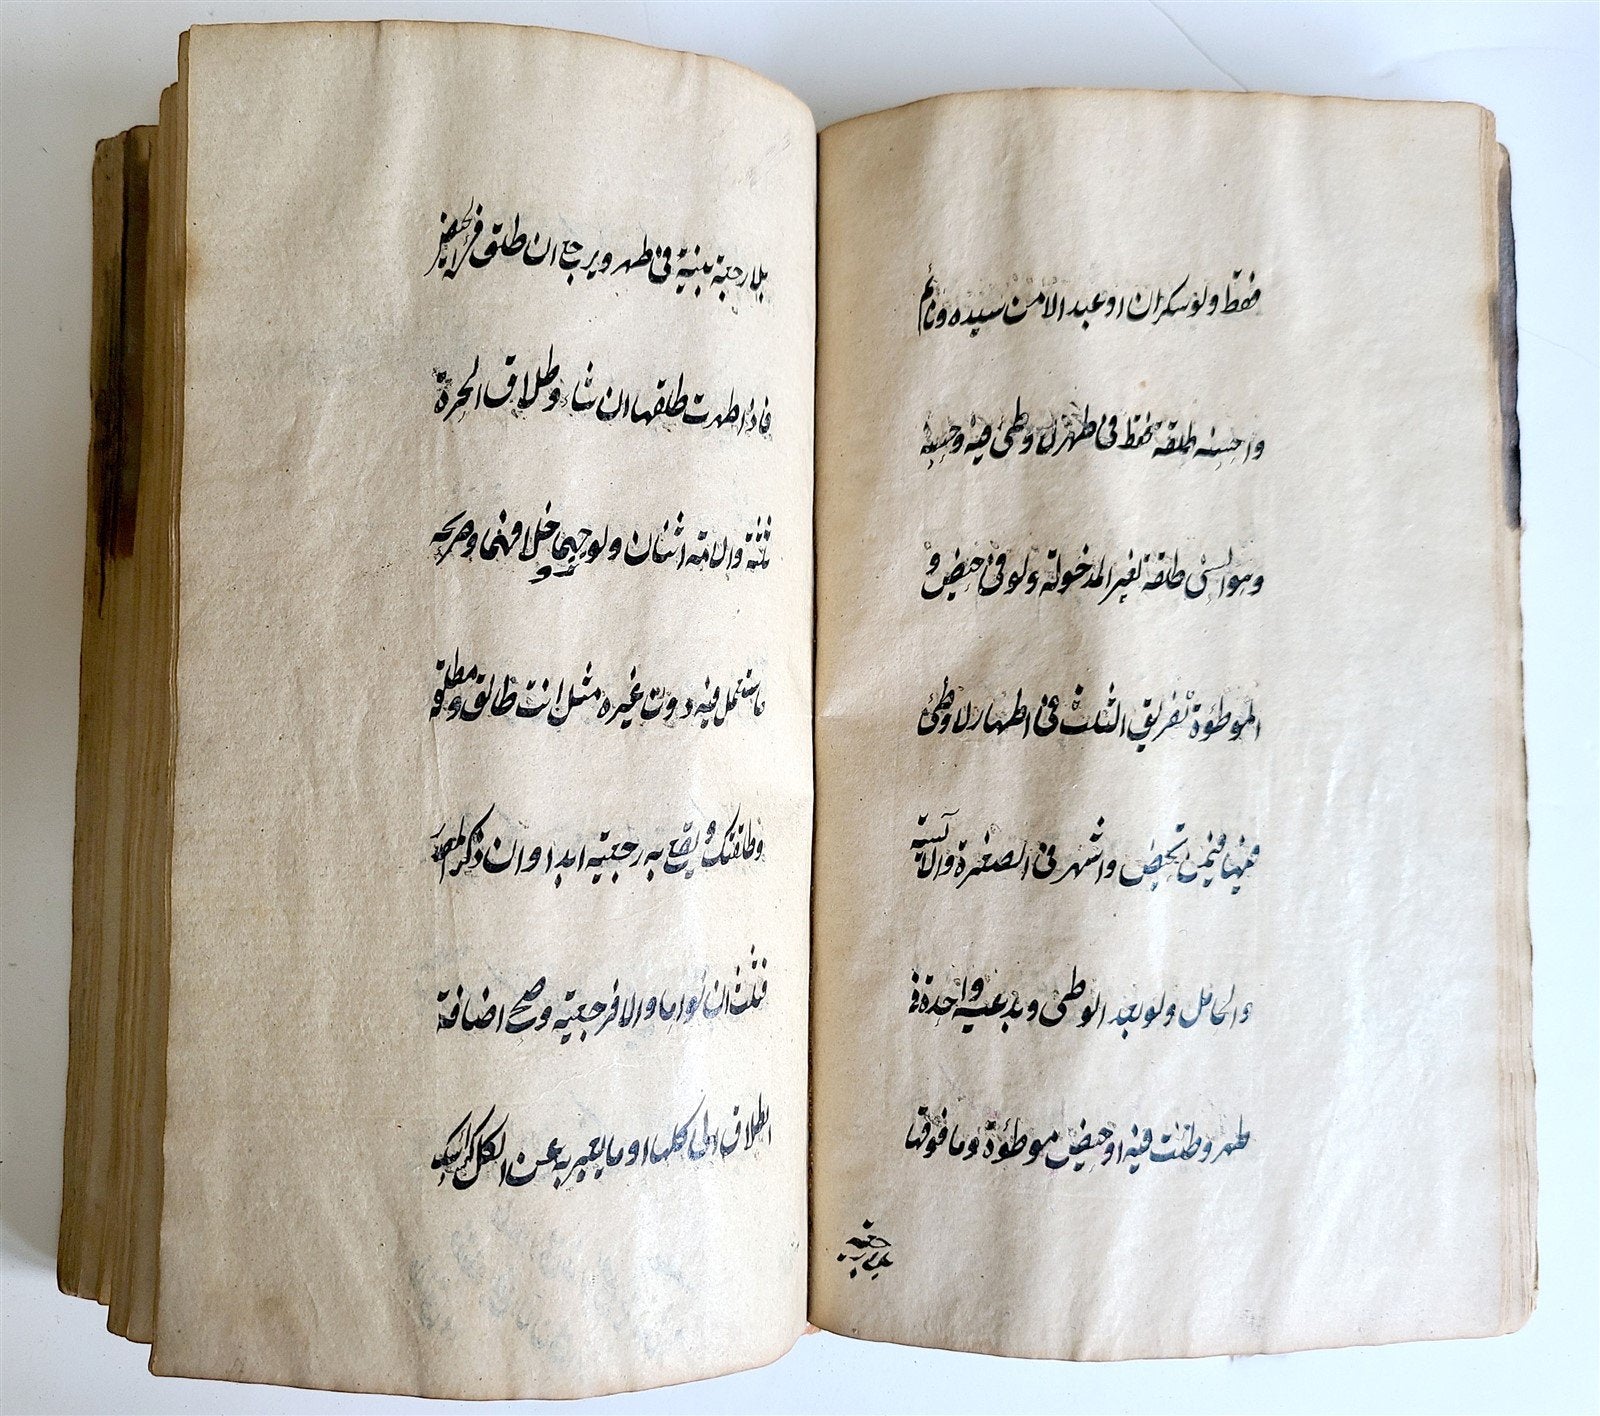 فقط ولو سكران او عبد الا من سيده ونائم
واحسنه طلقة فقط فى طهر لا وطئ فيه وحسنه
وهو السنى طلقة لغير المدخولة ولو فى حيض و
الموطوءة تفريق الثلث فى اطهار لا وطئ
فيها فيمن تحيض واشهر فى الصغيرة والآيسة
والحامل ولو بعد الوطى وبدعيه واحدة فى
طهر وطئت فيه او حيض موطوءة وما فوقها
بلا رجعة
بلا رجعة بينة فى طهر ويرجع ان طلق فى الحيض
فاذا طهرت طلقها ان شاء وطلاق الحرة
ثلثة والامة اثنان ولو زوجهما خلافهما وصريحه
ما استعمل فيه دون غيره مثل انت طالق ومطلقة
وطلقتك ويقع به رجعية ابدا وان ذكر المصدر
فثلث ان نواها والا فرجعية وصح اضافة
الطلاق الى كلها او ما يعبر به عن الكل كرأسك